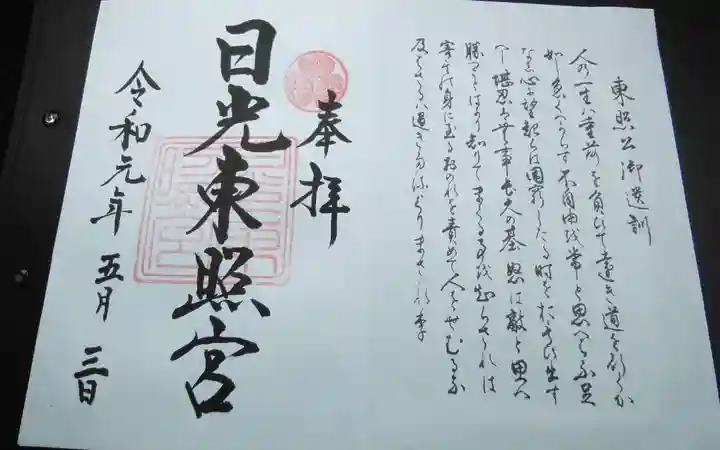 東照公御遺訓
人の一生は重荷を負いて遠き道を行くか
如し急くへからす不自由を常と思へは不足
なし心に望起らは困窮したる時を
へし堪忍は無事長久の基怒は敵と思へ
勝事はかり知りてまくる事を知らされは
害其身に至るおのれを責めて人をせむるな
及はさるは過きたるよりまされり
奉拝
日光東照宮
令和元年五月三日